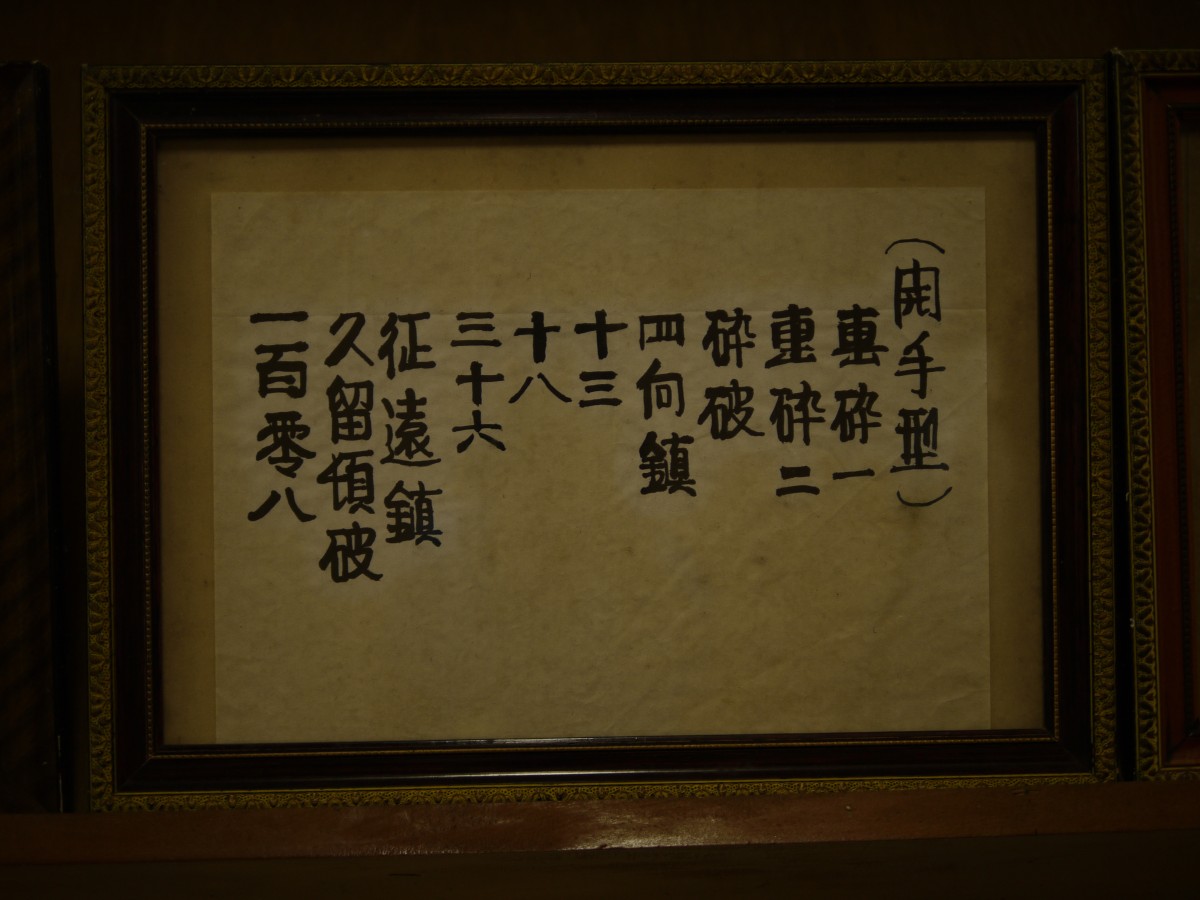 (開手型)
重砕一
重砕二
砕破
四向鎮
十三
十八
三十六
征遠鎮
久留頓破
一百零八